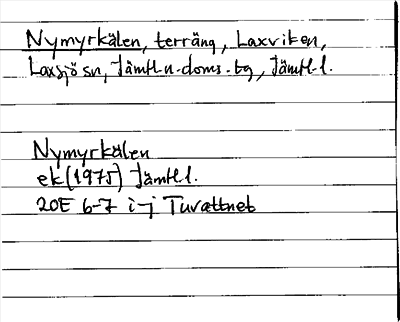 Nymyrkälen, terräng, Laxviken,
Laxsjö sn, Jämtl. n. doms. tg, Jämtl. l.
Nymyrkälen
ek (1975) Jämtl.
20E 6-7 i-j Tuvattnet